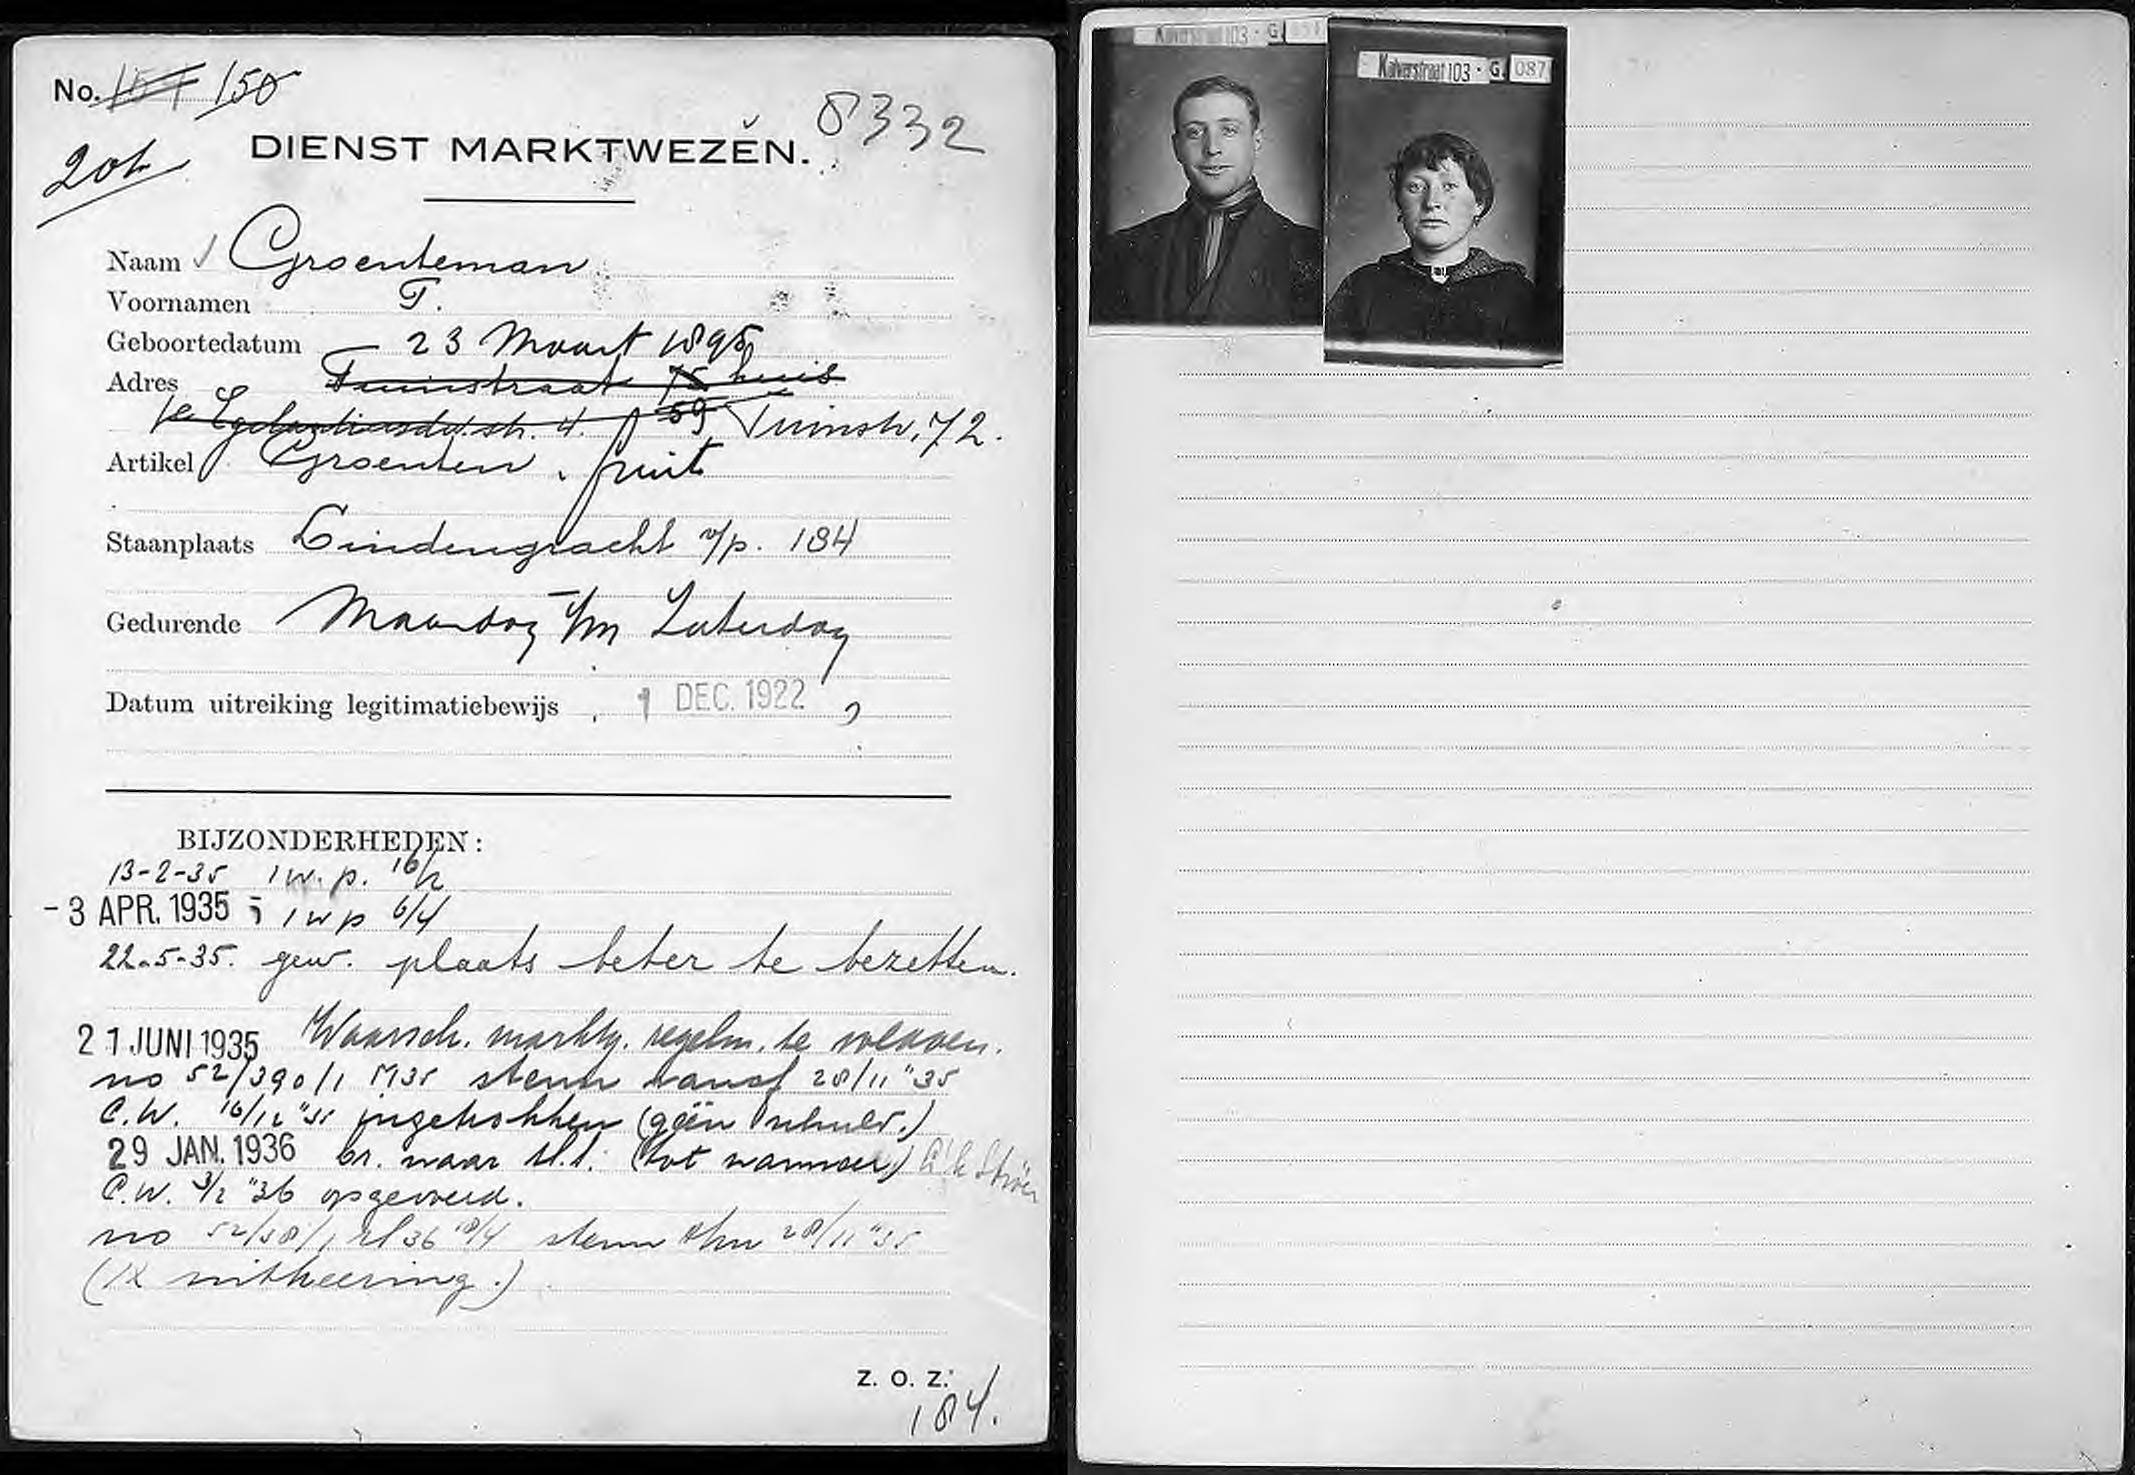 No. 150
8332
DIENST MARKTWEZEN.
Naam Groenteman
Voornamen T.
Geboortedatum 23 Maart 1895
Adres Tuinstraat 75 huis
59 Tuinstr. 72.
Artikel Groenten, fruit
Staanplaats Lindengracht v/p. 184
Gedurende Maandag t/m Zaterdag
Datum uitreiking legitimatiebewijs 1 DEC. 1922
BIJZONDERHEDEN:
13-2-35 1 w. p. 16/2
-3 APR. 1935 1 w p 6/4
22-5-35. gew. plaats beter te bezetten.
21 JUNI 1935 Waarsch. marktg. regelm. te voldoen.
no 52/390/1 M35 steun vanaf 28/11 "35
C.W. 16/12 "35 ingetrokken (géén
29 JAN. 1936 br. naar (tot wanneer)
C.W. 3/2 "36 opgevoerd.
no 52/38/1 36 18/4 steun 28/11 "35
(1x uitkeering.)
Z. O. Z.
184.
Kalverstraat 103 · G
Kalverstraat 103 · G. 087